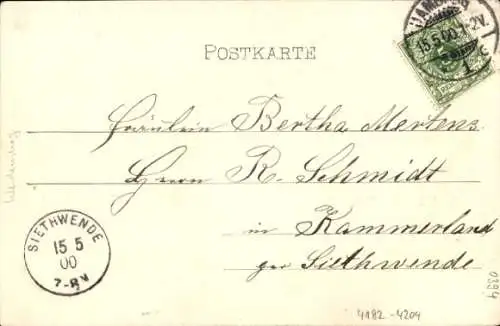 HAMBURG
15.5.00.1-2V.
1
POSTKARTE
Fräulein Bertha Mertens
Herrn R. Schmidt
in Kammerland
per Siethwende
SIETHWENDE
15 5
00
7-8N
4182-4204
0394